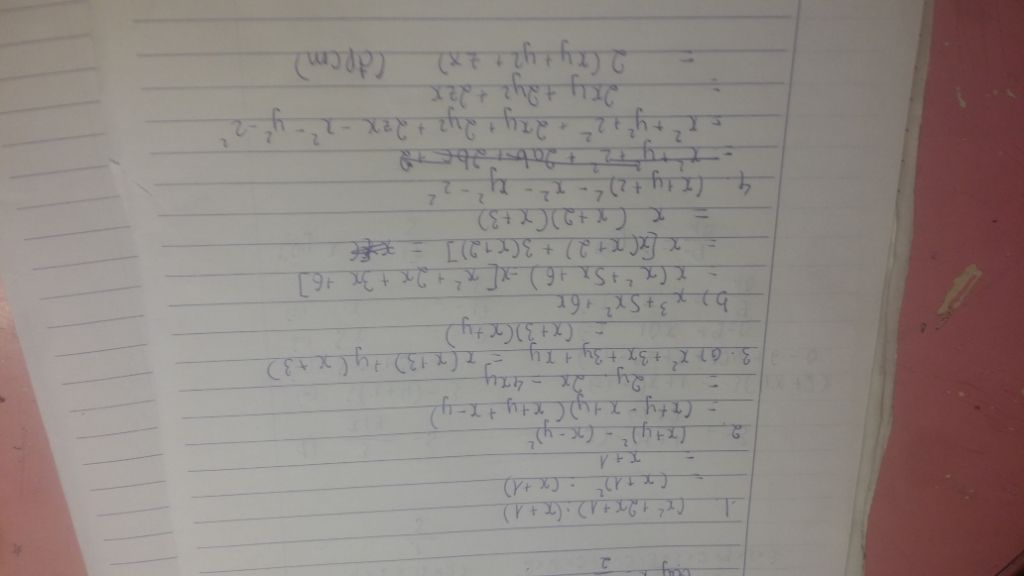 1. (x² + 2x + 1) : (x + 1)
= (x + 1)² : (x + 1)
= x + 1
2. (x + y)² - (x - y)²
= (x + y - x + y)(x + y + x - y)
= 2y . 2x = 4xy
3. a) x² + 3x + 3y + xy = x(x + 3) + y(x + 3)
= (x + 3)(x + y)
b) x³ + 5x² + 6x
= x(x² + 5x + 6) = x[x² + 2x + 3x + 6]
= x[x(x + 2) + 3(x + 2)] =
= x (x + 2)(x + 3)
4. (x + y + z)² - x² - y² - z²
= x² + y² + z² + 2ab + 2bc + 2
= x² + y² + z² + 2xy + 2yz + 2zx - x² - y² - z²
= 2xy + 2yz + 2zx
= 2(xy + yz + zx) (đpcm)